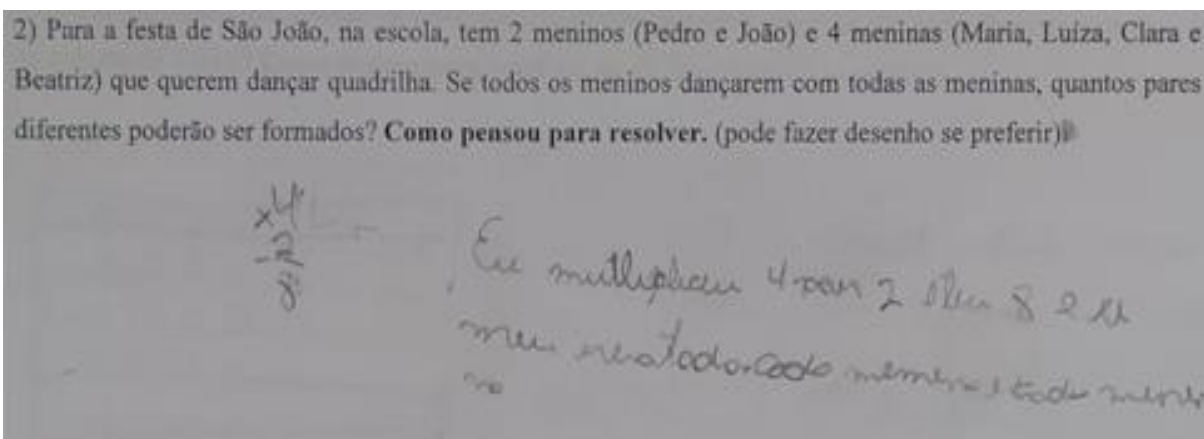 2) Para a festa de São João, na escola, tem 2 meninos (Pedro e João) e 4 meninas (Maria, Luíza, Clara e
Beatriz) que querem dançar quadrilha. Se todos os meninos dançarem com todas as meninas, quantos pares
diferentes poderão ser formados? Como pensou para resolver. (pode fazer desenho se preferir)
x4
-2
8
Eu 4 2 8 e
meu
no